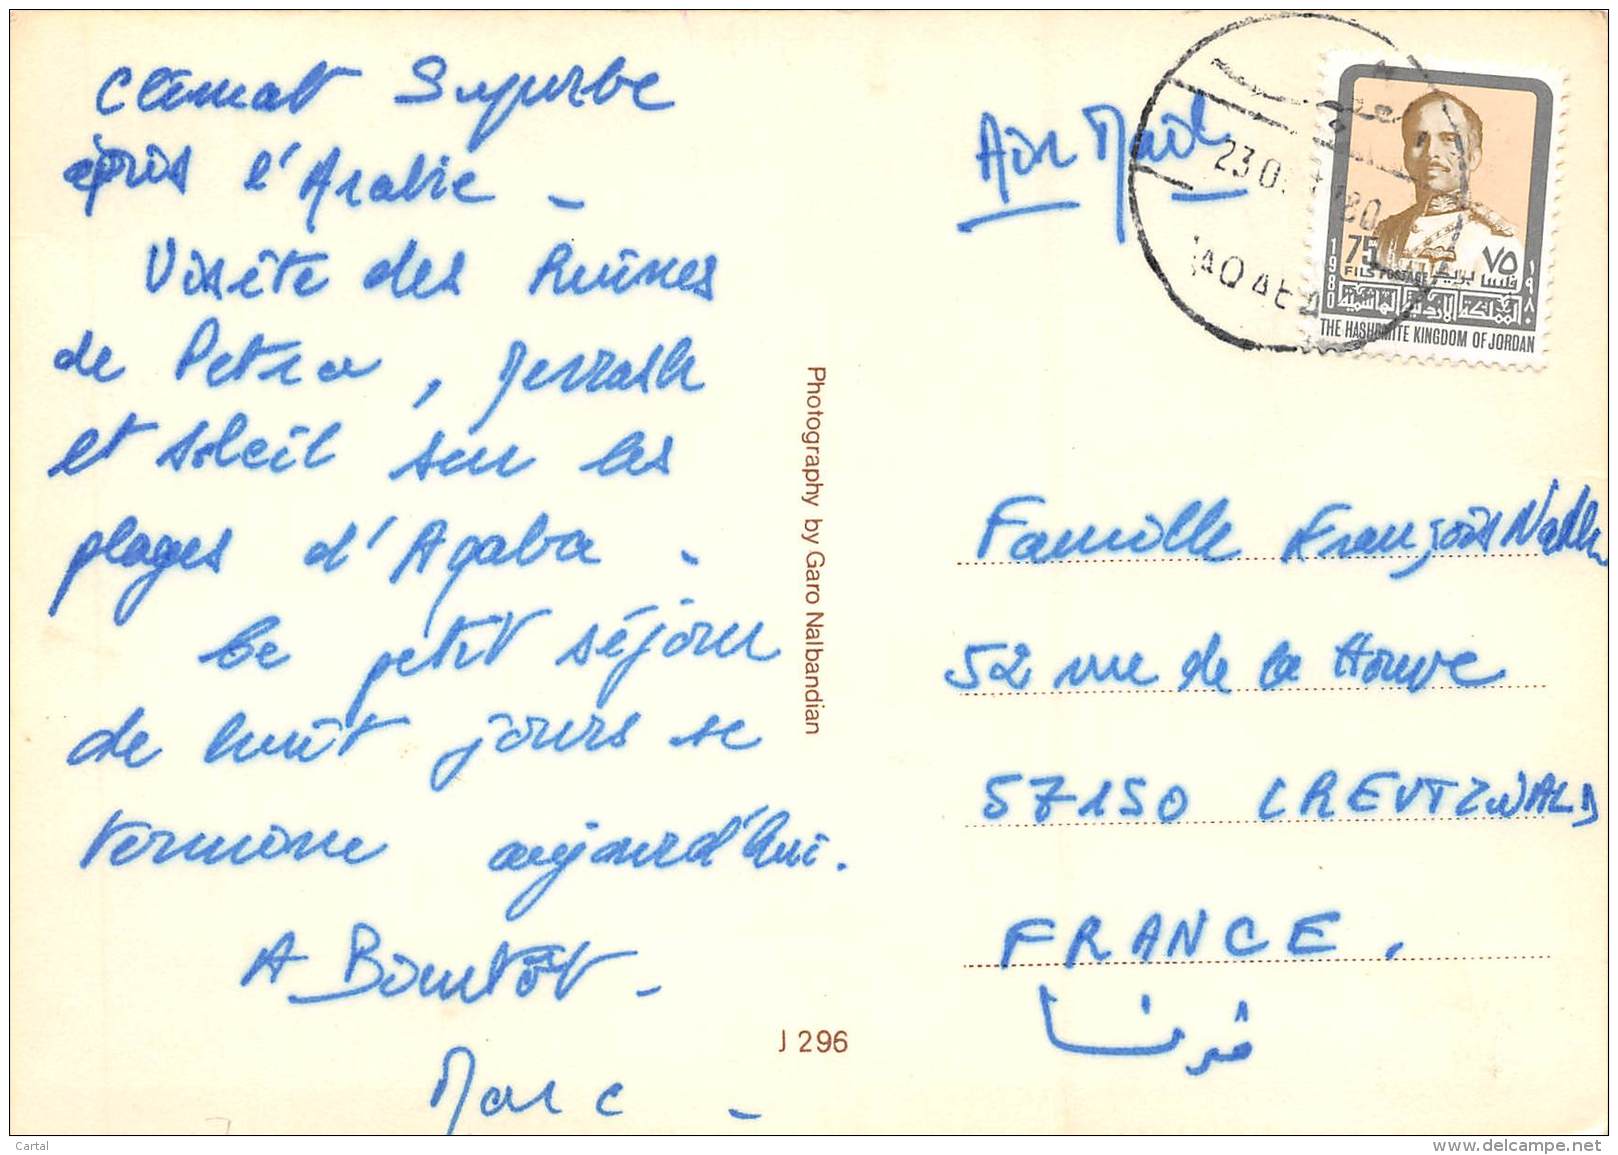 Climat Superbe
après l'Arabie –
Visite des Ruines
de Petra, Jerrash
et soleil sur les
plages d'Aqaba –
Ce petit séjour
de huit jours se
termine aujourd'hui.
A Bientôt –
Marc –
Photography by Garo Nalbandian
J 296
Air Mail
AQABA
75
٧٥
FILS POSTAGE
1980
١٩٨٠
المملكة الأردنية الهاشمية
THE HASHEMITE KINGDOM OF JORDAN
Famille François
52 rue de la Houve
57150 CREUTZWALD
FRANCE,
فرنسا
Cartal
www.delcampe.net